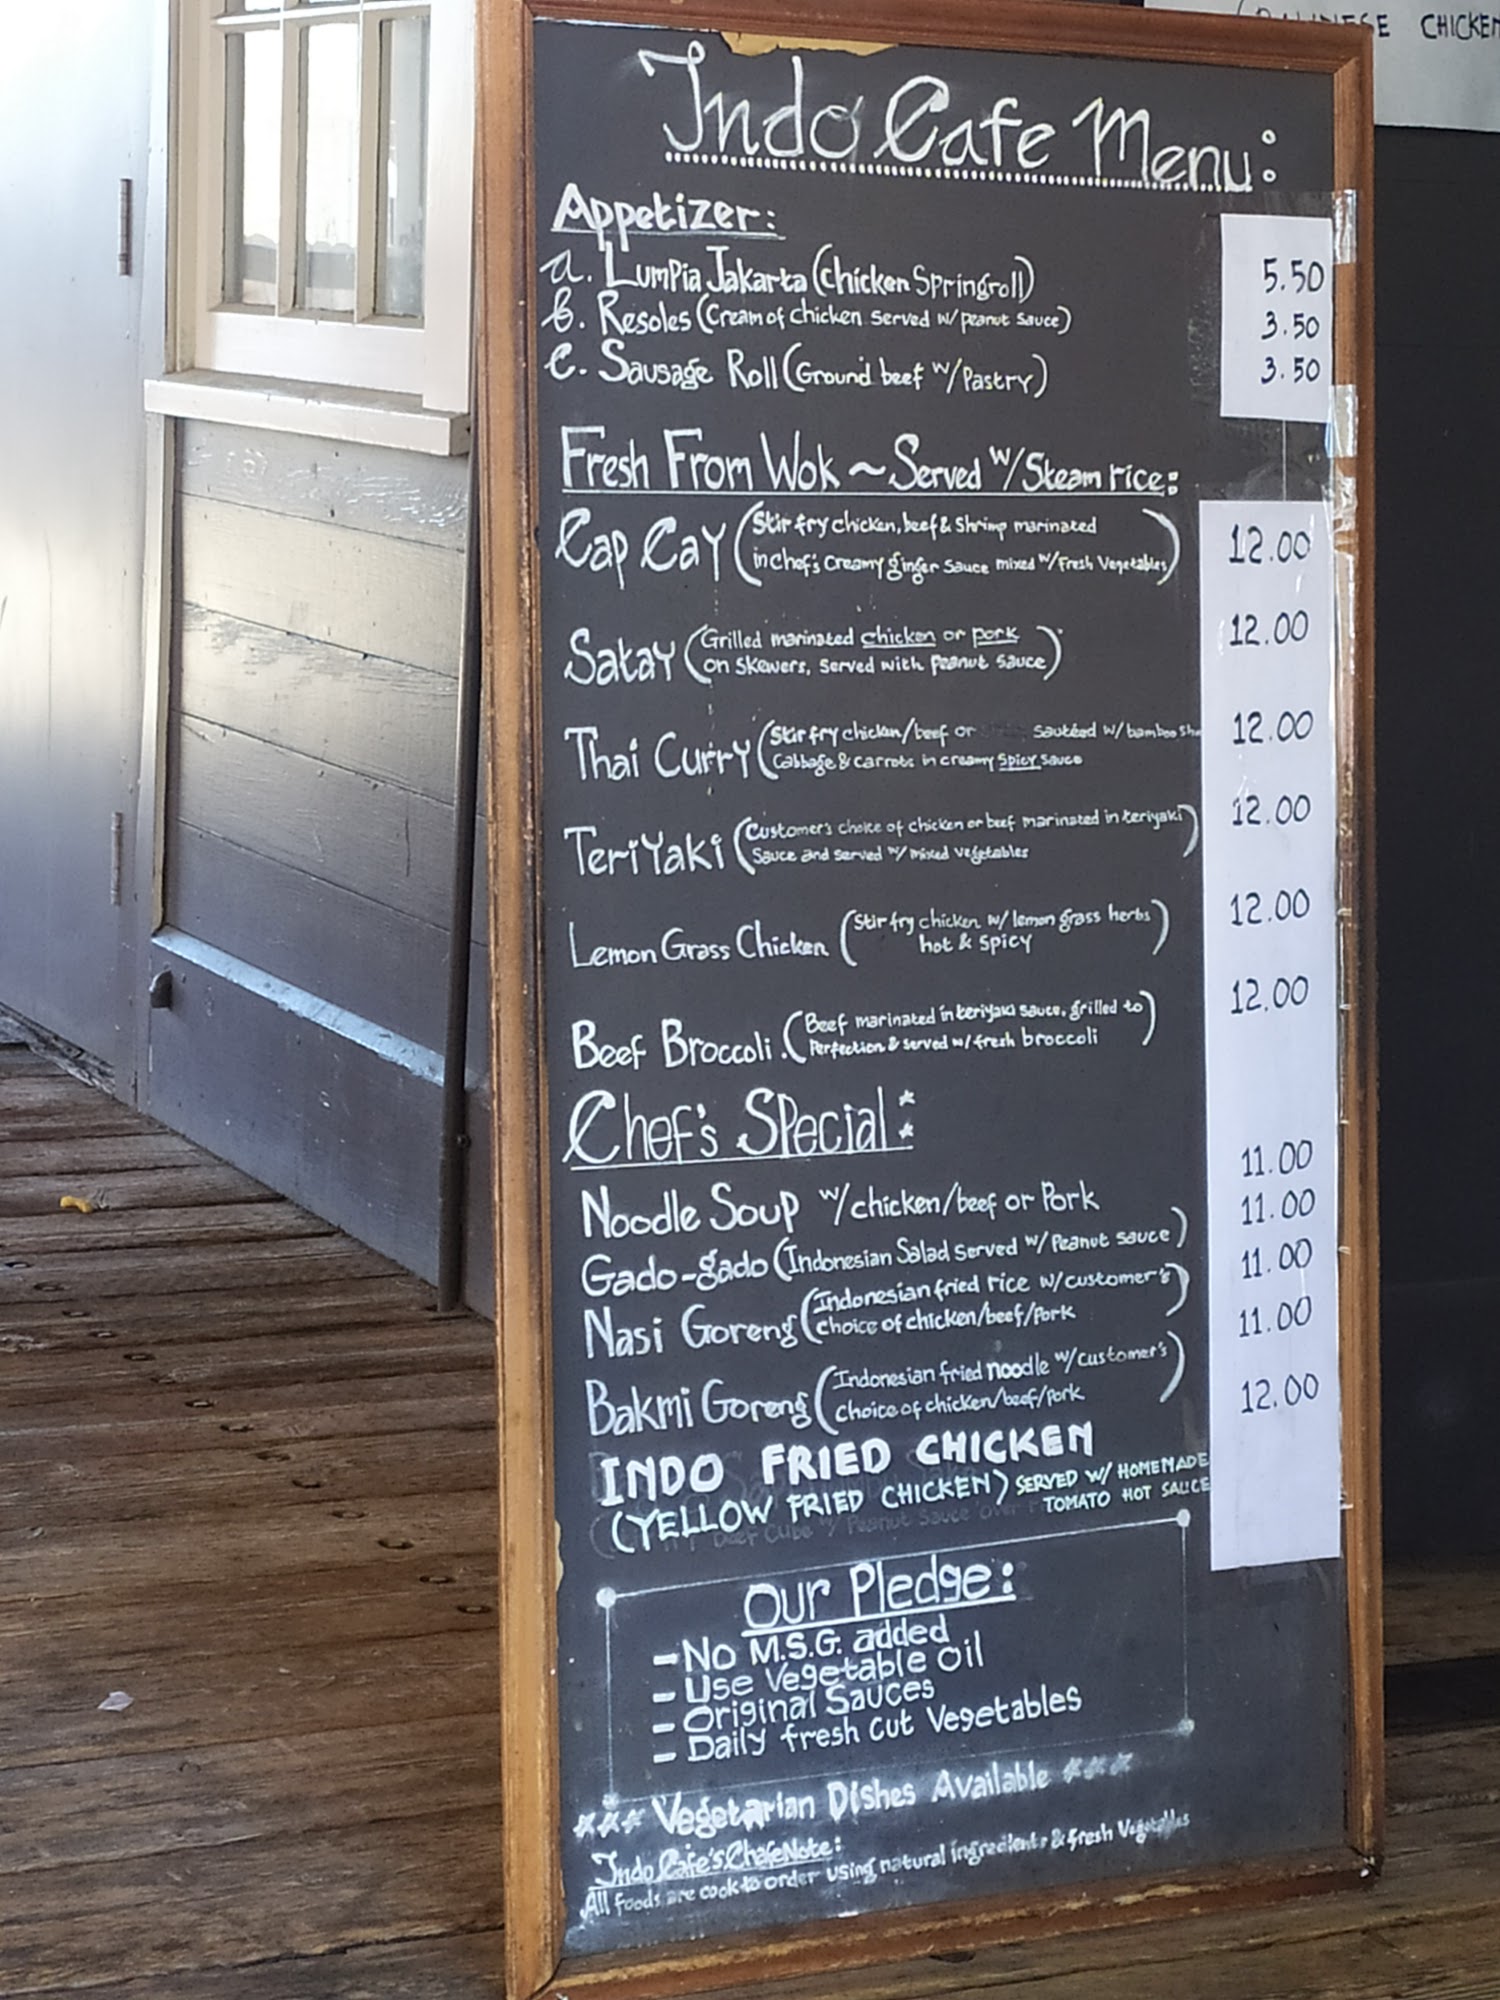 CHICKEN
Indo Cafe Menu:
Appetizer:
a. LumPia Jakarta (chicken Springroll) 5.50
b. Resoles (Cream of chicken served w/ peanut sauce) 3.50
c. Sausage Roll (Ground beef w/Pastry) 3.50
Fresh From Wok ~ Served w/Steam rice:
Cap Cay (Stir fry chicken, beef & Shrimp marinated 12.00
in chef's creamy ginger sauce mixed w/Fresh Vegetables)
Satay (Grilled marinated chicken or pork 12.00
on skewers, served with Peanut sauce)
Thai Curry (Stir fry chicken/beef or sautéed w/bamboo 12.00
Cabbage & carrots in creamy spicy sauce
TeriYaki (Customer's choice of chicken or beef marinated in teriyaki 12.00
Sauce and served w/ mixed vegetables)
Lemon Grass Chicken (Stir fry chicken w/ lemon grass herbs 12.00
hot & spicy)
Beef Broccoli. (Beef marinated in teriyaki sauce, grilled to 12.00
Perfection & served w/ fresh broccoli)
Chef's Special:
Noodle Soup w/chicken/beef or Pork 11.00
Gado-gado (Indonesian Salad served w/ Peanut sauce) 11.00
Nasi Goreng (Indonesian fried rice w/customer's 11.00
choice of chicken/beef/pork)
Bakmi Goreng (Indonesian fried noodle w/customer's 11.00
choice of chicken/beef/pork)
INDO FRIED CHICKEN 12.00
(YELLOW FRIED CHICKEN) SERVED W/ HOMEMADE
TOMATO HOT SAUCE
Our Pledge:
- No M.S.G. added
- Use Vegetable Oil
- Original Sauces
- Daily fresh cut Vegetables
*** Vegetarian Dishes Available ***
Indo Cafe's Chafe Note:
All foods are cook to order using natural ingredients & fresh Vegetables